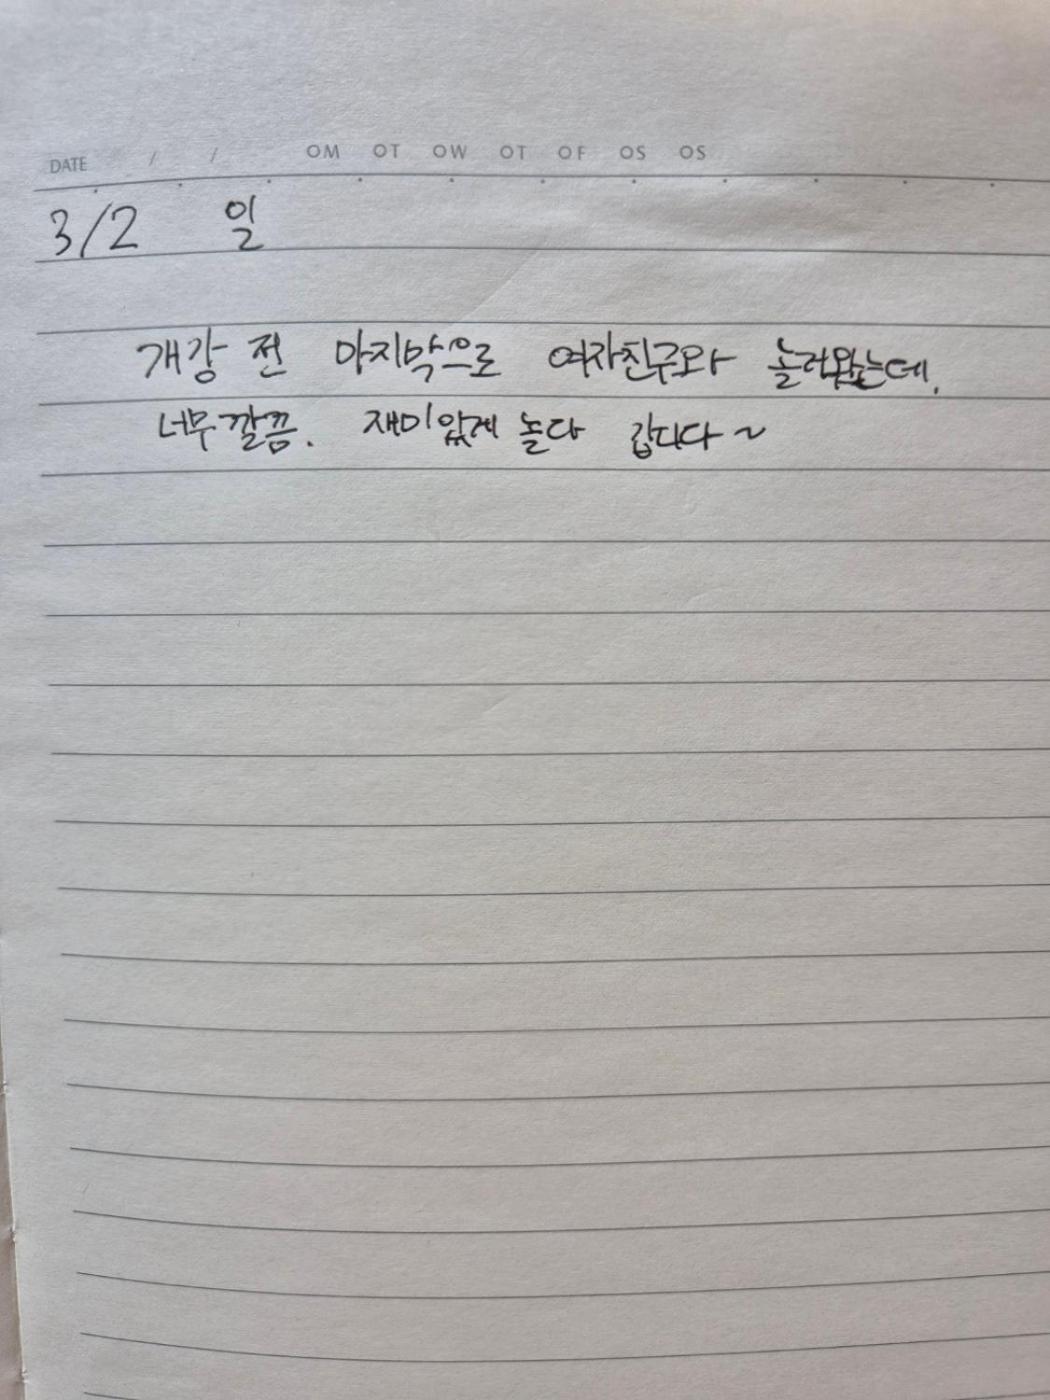 DATE / / OM OT OW OT OF OS OS
3/2 일
개강 전 마지막으로 여자친구와 놀러왔는데,
너무 깔끔. 재미있게 놀다 갑니다~